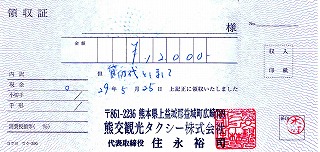 領収証
様
金額
¥12000-
内訳
但 貸切代として
現金
29年5月25日 上記正に領収いたしました
小切手
手形
消費税額等( %)
収入
印紙
〒861-2236 熊本県上益城郡益城町広崎
熊交観光タクシー株式会社
代表取締役 住永裕司